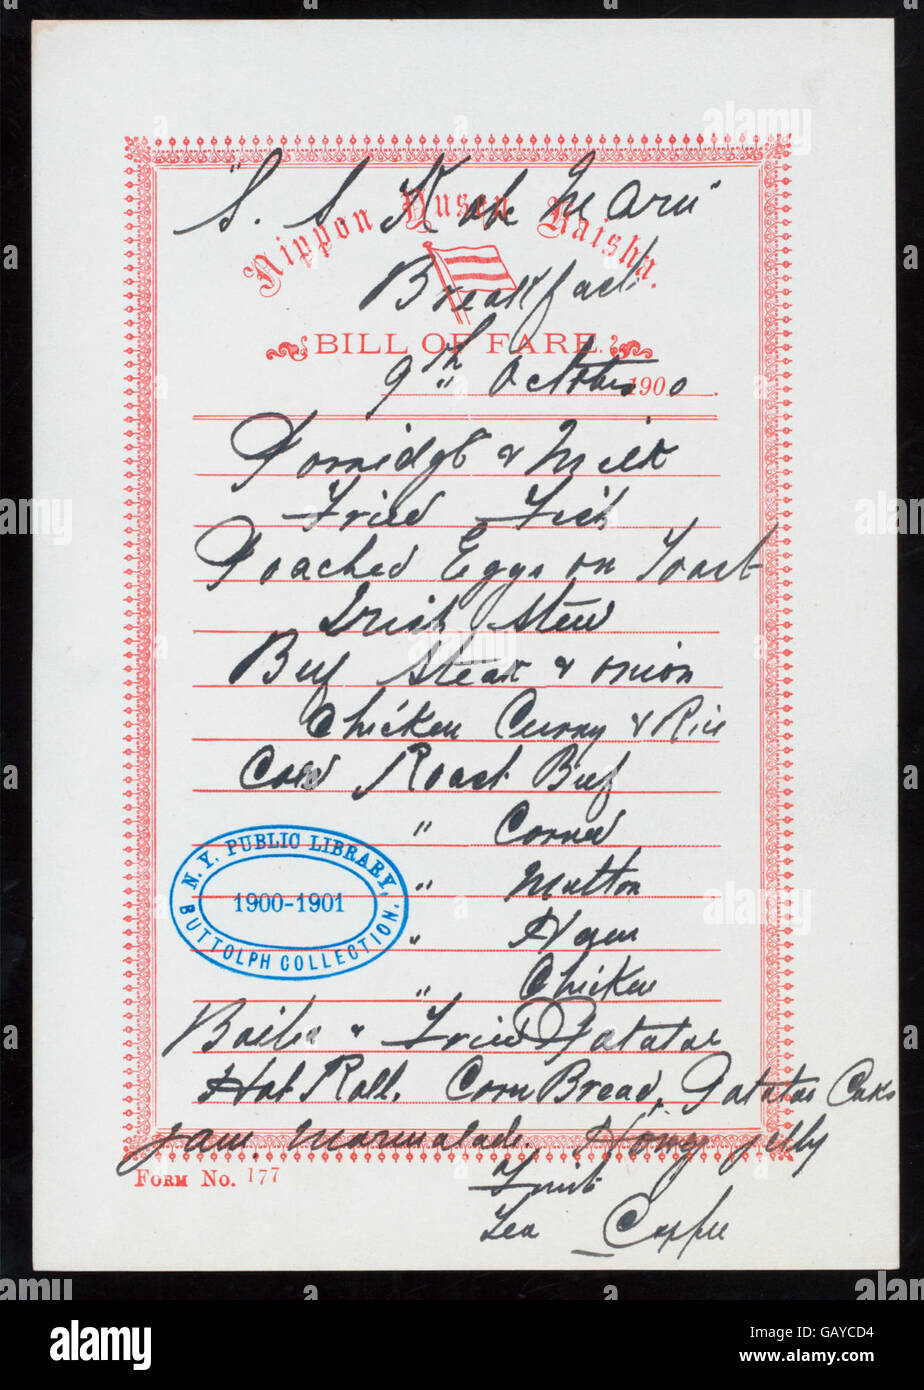 "S. S Kobe Maru"
Nippon Yusen Kaisha.
Breakfast
BILL OF FARE.
9th October 1900.
Porridge & Milk
Fried Fish
Poached Eggs on Toast
Irish Stew
Beef Steak & onion
Chicken Curry & Rice
Cold Roast Beef
" Corned
" Mutton
" Ham
" Chicken
N. Y. PUBLIC LIBRARY,
1900-1901
BUTTOLPH COLLECTION.
Boiled & Fried Potatoe
Hot Roll. Corn Bread, Potatoe Cake
Jam. Marmalade. Honey Jelly
Fruit
Tea Coffee
FORM No. 177
alamy
GAYCD4
www.alamy.com